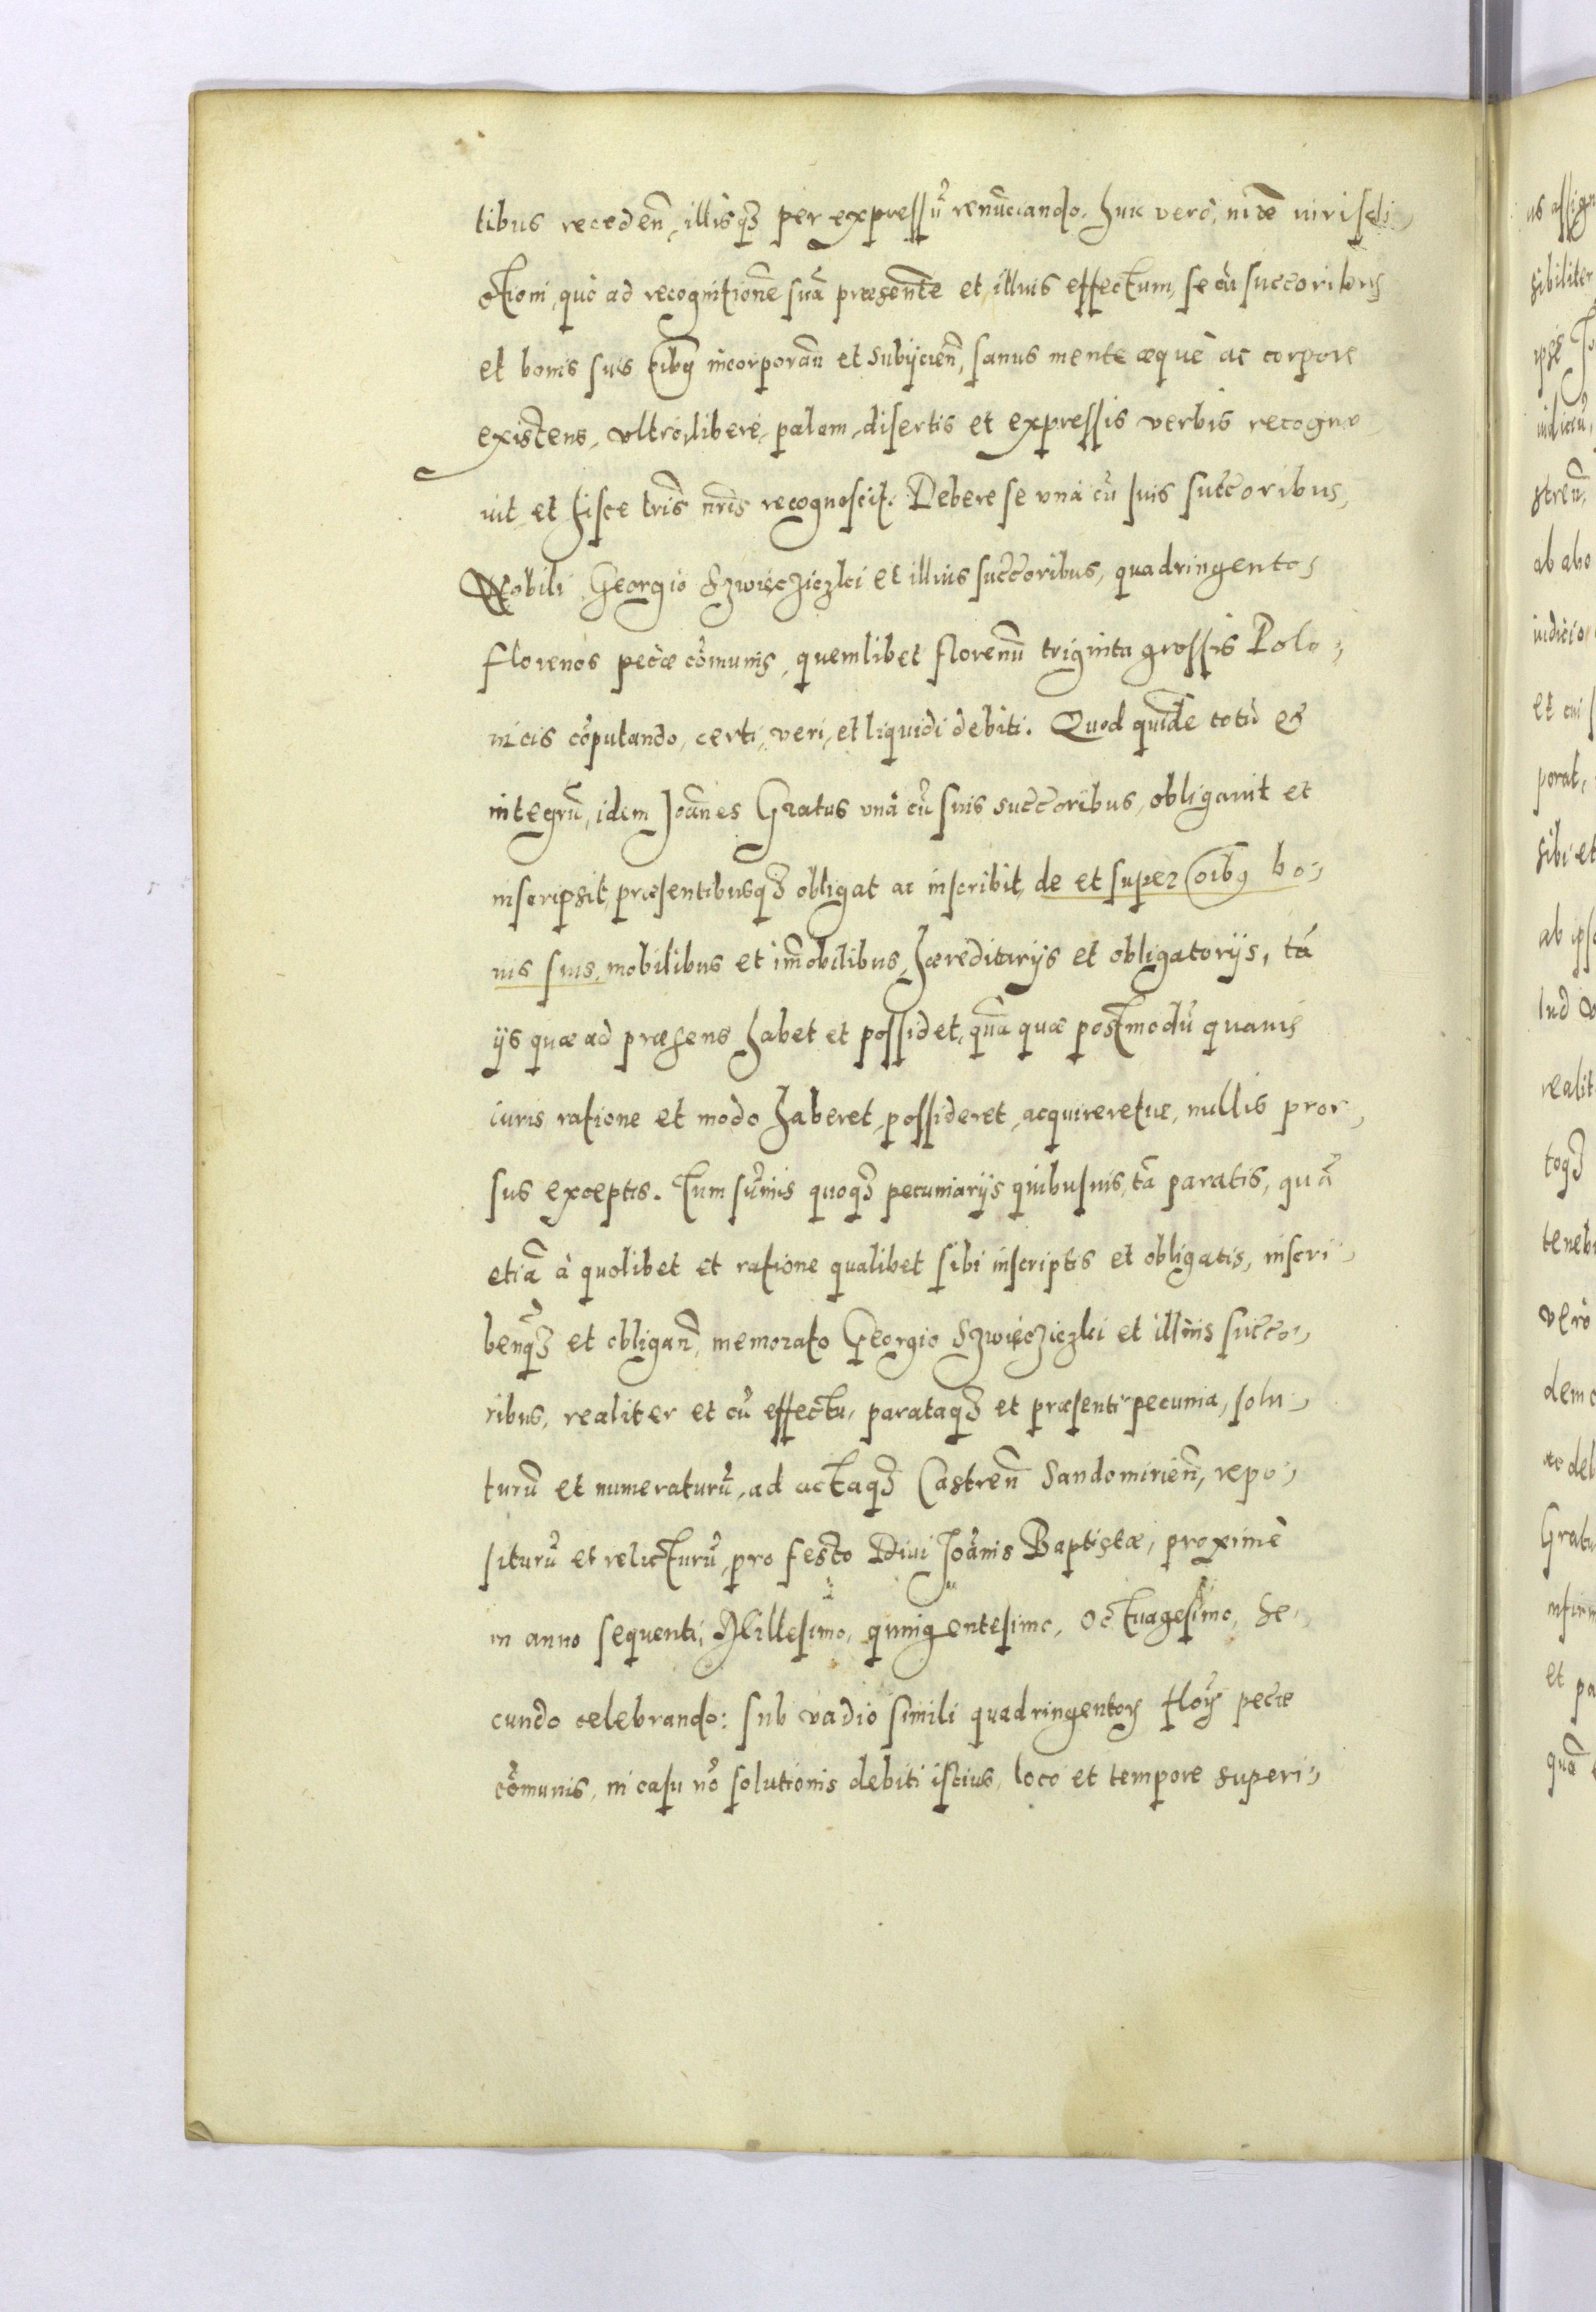 tibus recedeñ, illisq3 per expressũ renũciando. Huic verò, niõe iurisdi,
ctioni, quò ad recognitionẽ suã præsentẽ et illius effectum, se cũ succoribus
et bonis suis oĩbꝰ incorporañ et subijcieñ, sanus mente æquè ac corpore
existens, vltrò, liberè, palam, disertis et expressis verbis recogno
uit et hisce tris̃ nris̃ recognoscit. Debere se vnà cũ suis succoribus,
Nobili Georgio Szwięcziczki et illius succoribus, quadringentos
florenos pecũæ cõmunis, quemlibet florenũ triginta grossis Polo,
nicis cõputando, certi, veri, et liquidi debiti. Quod quidẽ totũ et
integrũ, idem Joãnes Gratus vnà cũ suis succoribus, obligauit et
inscripsit, præsentibusq3 obligat ac inscribit, de et super oĩbꝰ bo,
nis suis, mobilibus et imobilibus, hæreditarijs et obligatorijs, tã
ijs quæ ad præsens habet et possidet, quã quæ postmodũ quauis
iuris ratione et modo haberet, possideret, acquireretue, nullis pror,
sus exceptis. Tum sũmis quoq3 pecuniarijs quibusuis, tã paratis, quã
etiã à quolibet et ratione qualibet sibi inscriptis et obligatis, inscri,
beñq3 et obligañ, memorato Georgio Szwięcziczki et illius succo,
ribus, realiter et cũ effectu, parataq3 et præsenti pecunia, solu,
turũ et numeraturũ, ad actaq3 Castreñ Sandomirieñ, repo,
siturũ et relicturũ, pro festo Diui Joãnis Baptistæ, proximè
in anno sequenti, Millesimo, quingentesimo, octuagesimo, se,
cundo celebrando: sub vadio simili quadringentoꝝ floꝝ pecũæ
cõmunis, in casu nõ solutionis debiti istius, loco et tempore superi,